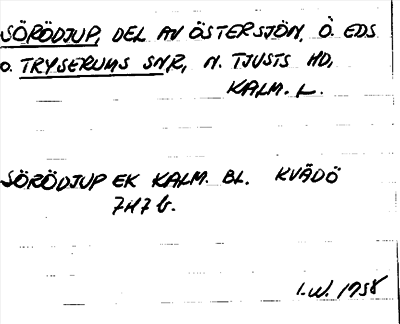 SÖRÖDJUP, DEL AV ÖSTERSJÖN, Ö. EDS
O. TRYSERUMS SNR, N. TJUSTS HD,
KALM. L.
SÖRÖDJUP EK KALM. BL. KVÄDÖ
7H7b.
I.W. 1958